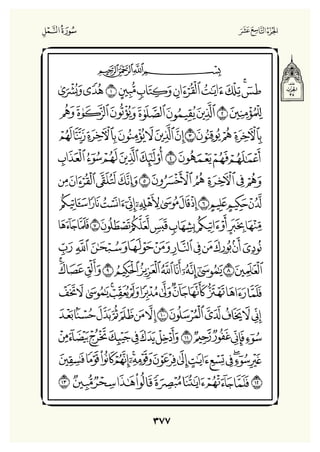 الجزء التاسع عشر
سورة النمل
بسم الله الرحمن الرحيم
طسٓ تِلْكَ ءَايَٰتُ ٱلْقُرْءَانِ وَكِتَابٍ مُّبِينٍ ١ هُدًى وَبُشْرَىٰ
لِلْمُؤْمِنِينَ ٢ ٱلَّذِينَ يُقِيمُونَ ٱلصَّلَوٰةَ وَيُؤْتُونَ ٱلزَّكَوٰةَ وَهُم
بِٱلْءَاخِرَةِ هُمْ يُوقِنُونَ ٣ إِنَّ ٱلَّذِينَ لَا يُؤْمِنُونَ بِٱلْءَاخِرَةِ زَيَّنَّا لَهُمْ
أَعْمَٰلَهُمْ فَهُمْ يَعْمَهُونَ ٤ أُو۟لَٰٓئِكَ ٱلَّذِينَ لَهُمْ سُوٓءُ ٱلْعَذَابِ
وَهُمْ فِى ٱلْءَاخِرَةِ هُمُ ٱلْأَخْسَرُونَ ٥ وَإِنَّكَ لَتُلَقَّى ٱلْقُرْءَانَ مِن
لَّدُنْ حَكِيمٍ عَلِيمٍ ٦ إِذْ قَالَ مُوسَىٰ لِأَهْلِهِۦٓ إِنِّىٓ ءَانَسْتُ نَارًا سَـَٔاتِيكُم
مِّنْهَا بِخَبَرٍ أَوْ ءَاتِيكُم بِشِهَابٍ قَبَسٍ لَّعَلَّكُمْ تَصْطَلُونَ ٧ فَلَمَّا جَآءَهَا
نُودِىَ أَنۢ بُورِكَ مَن فِى ٱلنَّارِ وَمَنْ حَوْلَهَا وَسُبْحَٰنَ ٱللَّهِ رَبِّ
ٱلْعَٰلَمِينَ ٨ يَٰمُوسَىٰٓ إِنَّهُۥٓ أَنَا ٱللَّهُ ٱلْعَزِيزُ ٱلْحَكِيمُ ٩ وَأَلْقِ عَصَاكَ
فَلَمَّا رَءَاهَا تَهْتَزُّ كَأَنَّهَا جَآنٌّ وَلَّىٰ مُدْبِرًا وَلَمْ يُعَقِّبْ يَٰمُوسَىٰ لَا تَخَفْ
إِنِّى لَا يَخَافُ لَدَىَّ ٱلْمُرْسَلُونَ ١٠ إِلَّا مَن ظَلَمَ ثُمَّ بَدَّلَ حُسْنًۢا بَعْدَ
سُوٓءٍ فَإِنِّى غَفُورٌ رَّحِيمٌ ١١ وَأَدْخِلْ يَدَكَ فِى جَيْبِكَ تَخْرُجْ بَيْضَآءَ مِنْ
غَيْرِ سُوٓءٍ فِى تِسْعِ ءَايَٰتٍ إِلَىٰ فِرْعَوْنَ وَقَوْمِهِۦٓ إِنَّهُمْ كَانُوا۟ قَوْمًا فَٰسِقِينَ
١٢ فَلَمَّا جَآءَتْهُمْ ءَايَٰتُنَا مُبْصِرَةً قَالُوا۟ هَٰذَا سِحْرٌ مُّبِينٌ ١٣
٣٧٧